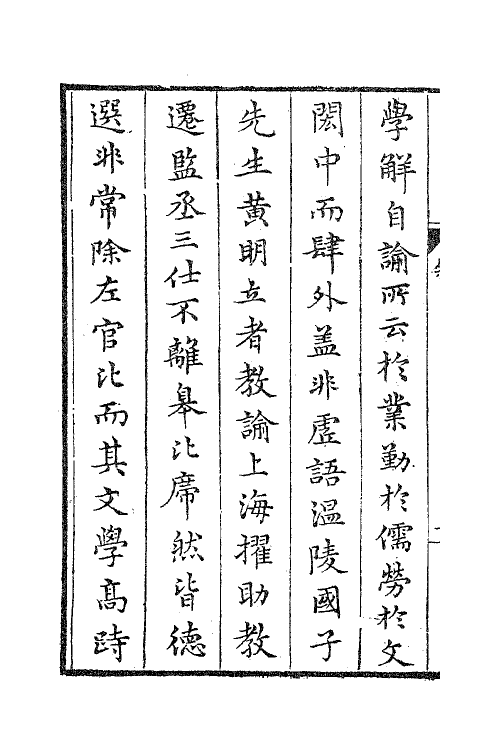 學解自論所云於業勤於儒勞於文
閎中而肆外盖非虛語溫陵國子
先生黃明立者教諭上海擢助教
遷監丞三仕不離皋比席然皆德
選非常除左官比而其文學高跱